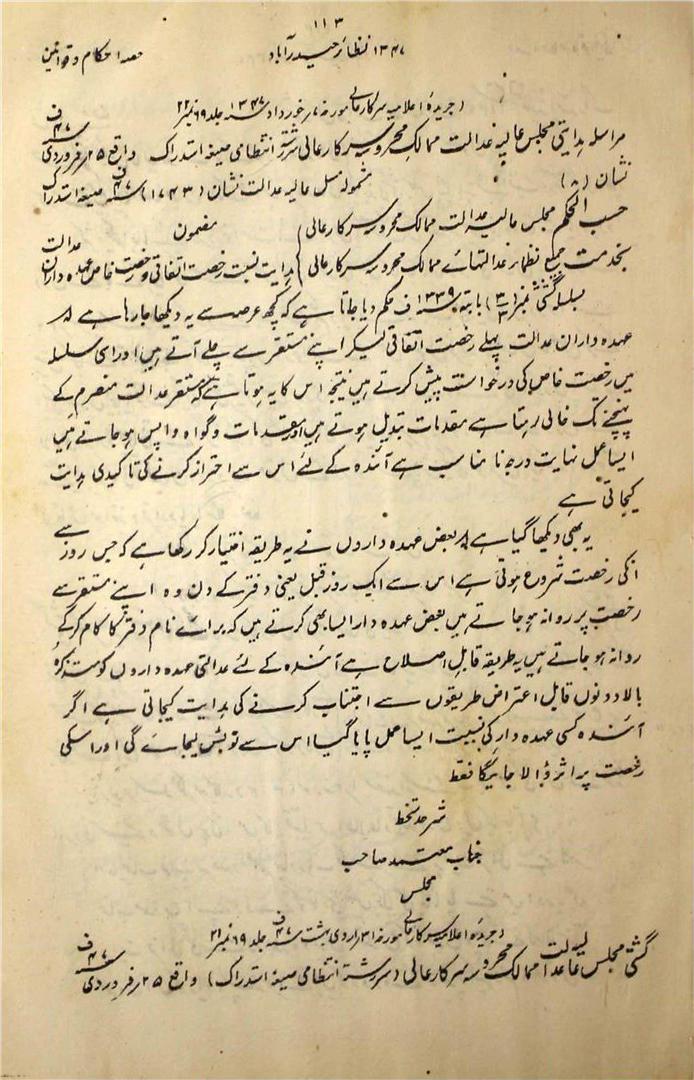 ۱۱۳
۱۳۴۷ نظائر حیدرآباد حصہ احکام و قوانین
(جریدۂ اعلامیہ سرکارعالی مورخہ ۷ر خورداد ۱۳۴۷ ف جلد ۶۹ نمبر ۲۲)
مراسلہ ہدایتی مجلس عالیہ عدالت ممالک محروسہ سرکارعالی سررشتہ انتظامی صیغہ استدراک واقع ۲۵ر فروردی ۴۷ ف
نشان (۸) مشمولہ مسل عالیہ عدالت نشان (۱۷۴۳) ۴۷ ف صیغہ استدراک
حسب الحکم مجلس عالیہ عدالت ممالک محروسہ سرکارعالی مضمون
بخدمت جمیع نظمائے عدالتہائے ممالک محروسہ سرکارعالی ہدایت نسبت رخصت اتفاقی و رخصت خاص عہدہ داران عدالت
بسلسلہ گشتی نمبر بابتہ ۱۳۳۹ ف حکم دیا جاتا ہے کہ کچھ عرصہ سے یہ دیکھا جا رہا ہے کہ
عہدہ داران عدالت پہلے رخصت اتفاقی لیکر اپنے مستقر سے چلے آتے ہیں اور اسی سلسلہ
میں رخصت خاص کی درخواست پیش کرتے ہیں نتیجہ اس کا یہ ہوتا ہے کہ مستقر عدالت منصرم کے
پہنچنے تک خالی رہتا ہے مقدمات تبدیل ہوتے ہیں اور مقدمات و گواہ واپس ہو جاتے ہیں
ایسا عمل نہایت درجہ نا مناسب ہے آئندہ کے لئے اس سے احتراز کرنے کی تاکیدی ہدایت
کیجاتی ہے
یہ بھی دیکھا گیا ہے کہ بعض عہدہ داروں نے یہ طریقہ اختیار کر رکھا ہے کہ جس روز سے
انکی رخصت شروع ہوتی ہے اس سے ایک روز قبل یعنی دفتر کے دن وہ اپنے مستقر سے
رخصت پر روانہ ہو جاتے ہیں بعض عہدہ دار ایسا بھی کرتے ہیں کہ برائے نام دفتر کا کام کر کے
روانہ ہو جاتے ہیں یہ طریقہ قابل اصلاح ہے آئندہ کے لئے عدالتی عہدہ داروں کو متذکرہ
بالا دونوں قابل اعتراض طریقوں سے اجتناب کرنے کی ہدایت کیجاتی ہے اگر
آئندہ کسی عہدہ دار کی نسبت ایسا عمل پایا گیا اس سے توبیش لیجائے گی اور اسکی
رخصت پر اثر ڈالا جائیگا فقط
شرحد تخط
جناب معتمد صاحب
مجلس
(جریدۂ اعلامیہ سرکارعالی مورخہ ۳۱ر اردی بہشت ۴۷ ف جلد ۶۹ نمبر ۲۱)
گشتی مجلس عالیہ عدالت ممالک محروسہ سرکارعالی (سررشتہ انتظامی صیغہ استدراک) واقع ۲۵ر فروردی ۴۷ ف